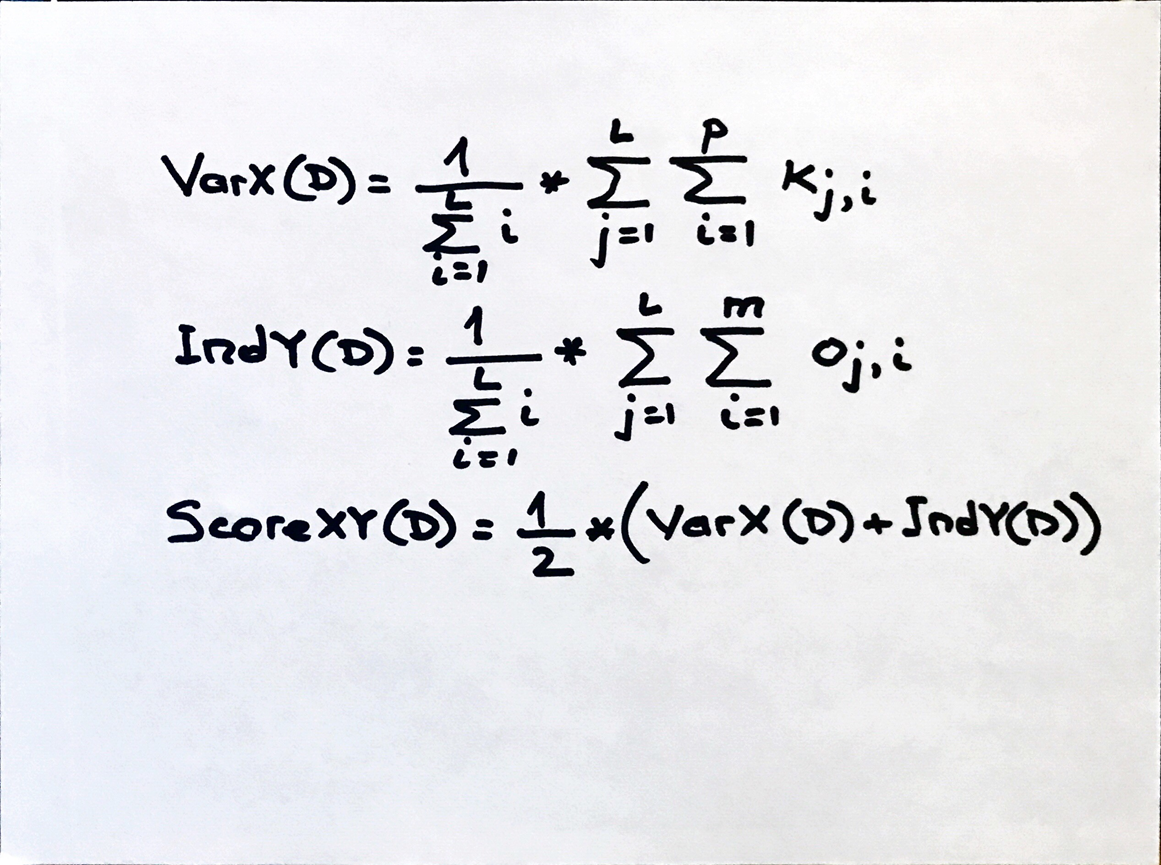 VarX(D) = \frac{1}{\sum_{i=1}^{L} i} * \sum_{j=1}^{L} \sum_{i=1}^{p} K_{j,i}
IndY(D) = \frac{1}{\sum_{i=1}^{L} i} * \sum_{j=1}^{L} \sum_{i=1}^{m} O_{j,i}
ScoreXY(D) = \frac{1}{2} * (VarX(D) + IndY(D))